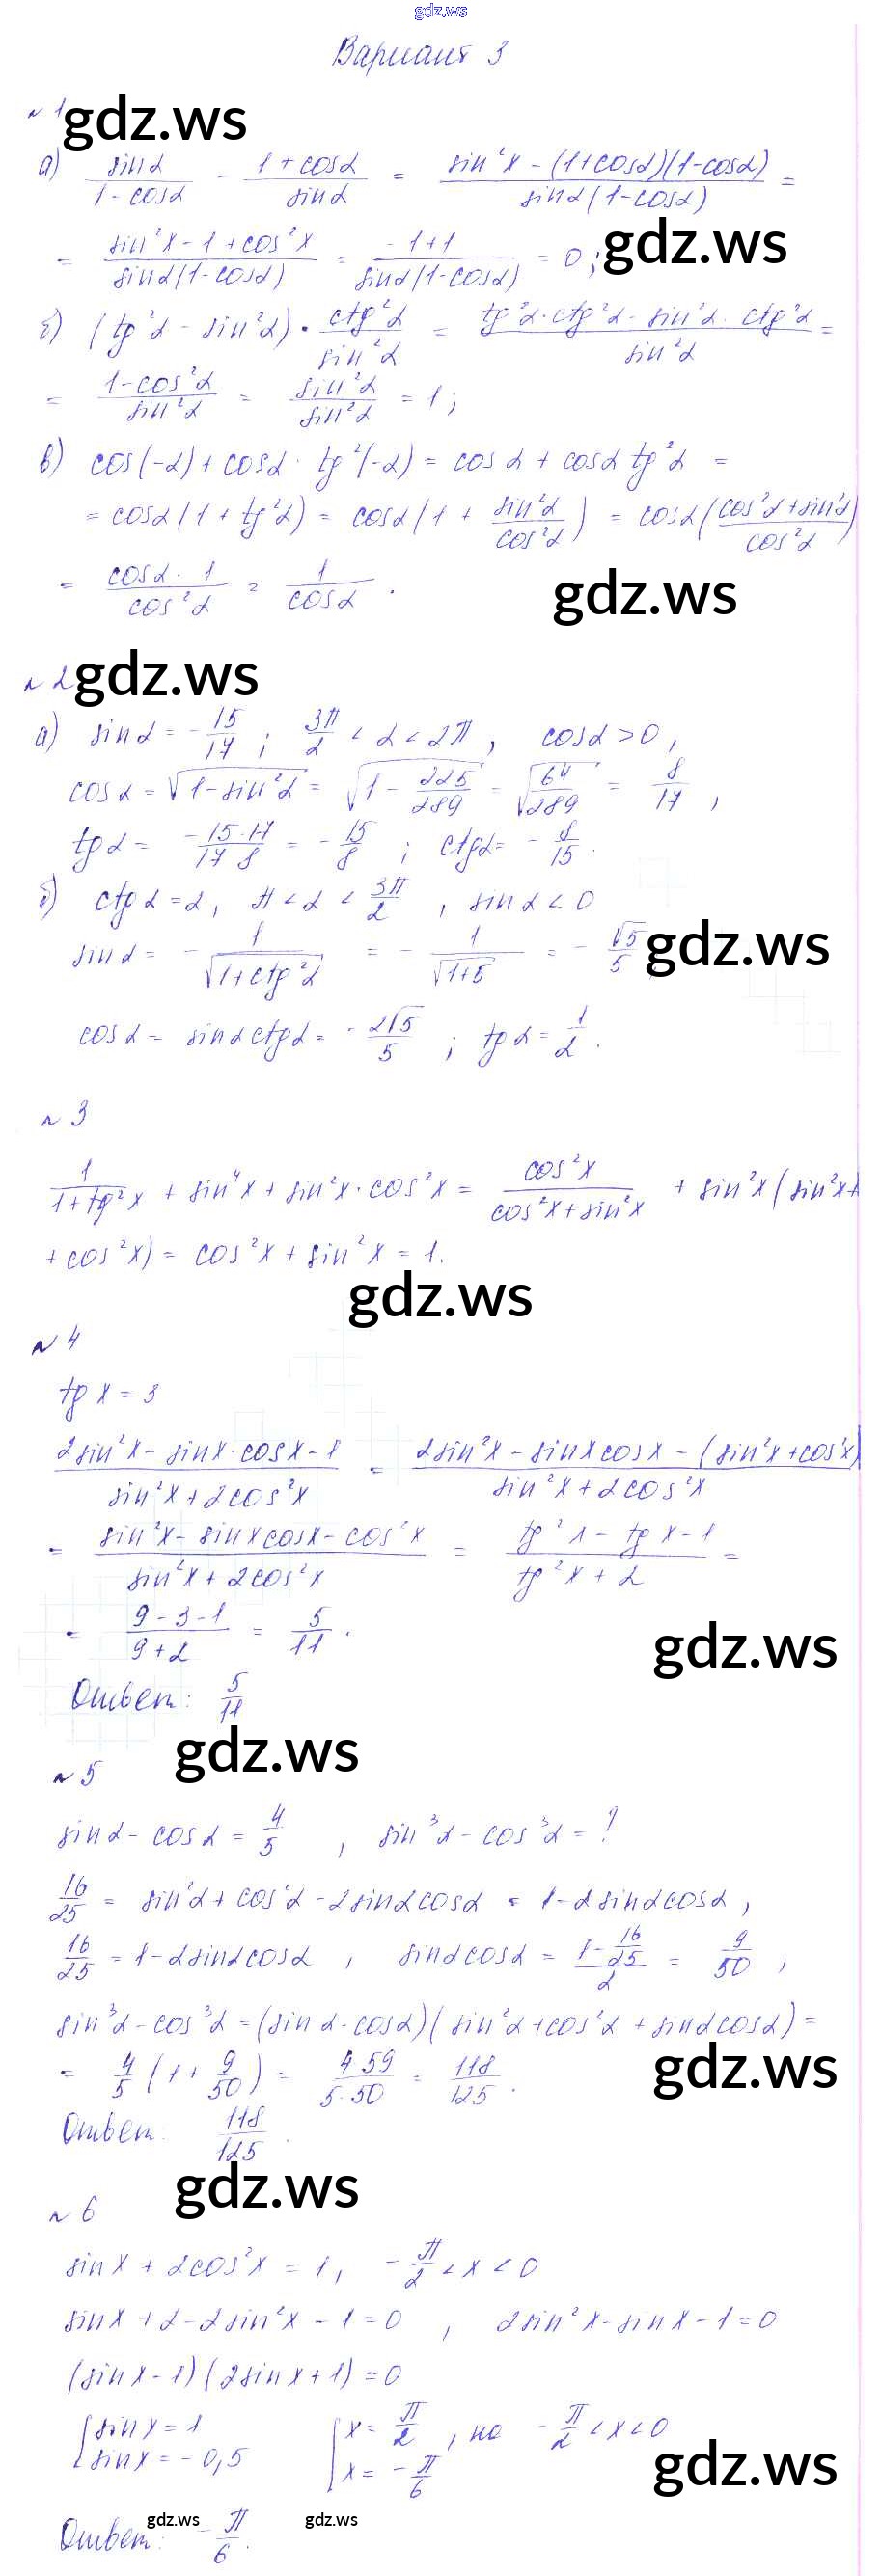 gdz.ws
Вариант 3
№ 1 gdz.ws
а) sinα/(1-cosα) - (1+cosα)/sinα = (sin²x - (1+cosα)(1-cosα))/(sinα(1-cosα)) =
= (sin²x-1+cos²x)/(sinα(1-cosα)) = (-1+1)/(sinα(1-cosα)) = 0; gdz.ws
б) (tg²α - sin²α) · ctg²α/sin²α = (tg²α·ctg²α - sin²α·ctg²α)/sin²α =
= (1-cos²α)/sin²α = sin²α/sin²α = 1;
в) cos(-α) + cosα · tg²(-α) = cosα + cosα tg²α =
= cosα(1 + tg²α) = cosα(1 + sin²α/cos²α) = cosα((cos²α+sin²α)/cos²α)
= (cosα·1)/cos²α = 1/cosα.
gdz.ws
№ 2 gdz.ws
а) sinα = -15/17; 3π/2 < α < 2π, cosα > 0,
cosα = √(1-sin²α) = √(1 - 225/289) = √(64/289) = 8/17,
tgα = (-15·17)/(17·8) = -15/8; ctgα = -8/15.
б) ctgα = 2, π < α < 3π/2, sinα < 0
sinα = -1/√(1+ctg²α) = -1/√(1+5) = -√5/5 gdz.ws
cosα = sinα ctgα = -2√5/5; tgα = 1/2.
№ 3
1/(1+tg²x) + sin⁴x + sin²x·cos²x = cos²x/(cos²x+sin²x) + sin²x(sin²x+
+cos²x) = cos²x + sin²x = 1.
gdz.ws
№ 4
tg x = 3
(2sin²x - sinx·cosx - 1)/(sin²x+2cos²x) = (2sin²x - sinxcosx - (sin²x+cos²x))/(sin²x+2cos²x)
= (sin²x - sinxcosx - cos²x)/(sin²x+2cos²x) = (tg²x - tgx - 1)/(tg²x+2) =
= (9-3-1)/(9+2) = 5/11.
gdz.ws
Ответ: 5/11
gdz.ws
№ 5
sinα - cosα = 4/5, sin³α - cos³α = ?
16/25 = sin²α + cos²α - 2sinαcosα = 1-2sinαcosα,
16/25 = 1-2sinαcosα, sinαcosα = (1-16/25)/2 = 9/50,
sin³α - cos³α = (sinα - cosα)(sin²α+cos²α + sinαcosα) =
= 4/5(1 + 9/50) = (4·59)/(5·50) = 118/125.
gdz.ws
Ответ: 118/125.
gdz.ws
№ 6
sinx + 2cos²x = 1, -π/2 < x < 0
sinx + 2 - 2sin²x - 1 = 0, 2sin²x - sinx - 1 = 0
(sinx - 1)(2sinx + 1) = 0
[sinx = 1 [x = π/2, но -π/2 < x < 0
[sinx = -0,5 [x = -π/6
gdz.ws
Ответ: -π/6.
gdz.ws gdz.ws